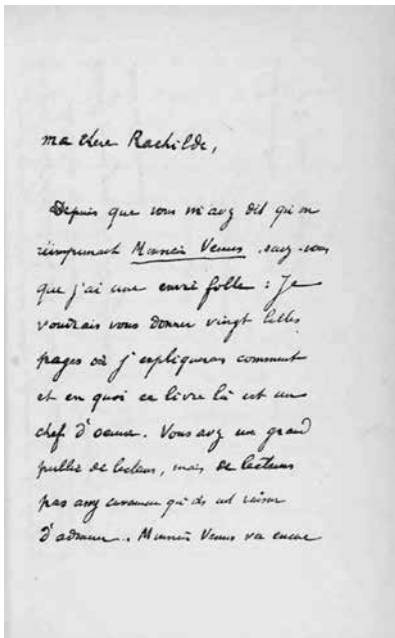 ma chere Rachilde,
Depuis que vous m'avez dit qu'on
réimprimait Monsieur Venus savez-vous
que j'ai une envie folle : Je
voudrais vous donner vingt belles
pages où j'expliquerais comment
et en quoi ce livre là est un
chef d'oeuvre. Vous avez un grand
public de lecteurs, mais de lecteurs
pas assez convaincus qu'ils ont raison
d'admirer. Monsieur Venus va encore